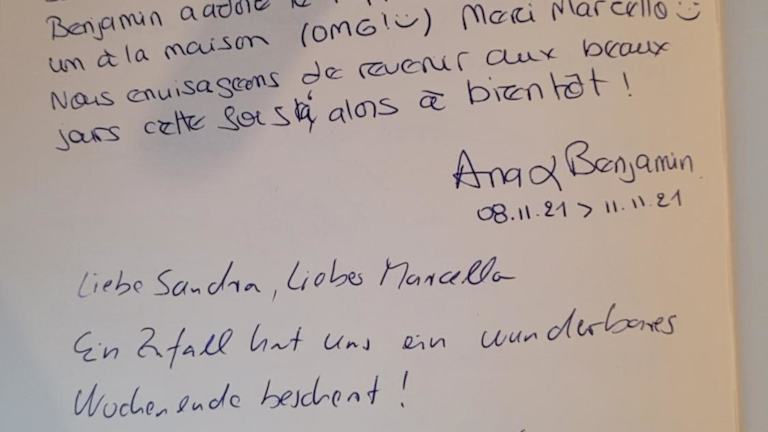 Benjamin a adoré le
un à la maison (OMG!) Merci Marcello
Nous envisageons de revenir aux beaux
jours cette fois, alors à bientôt !
Ana & Benjamin
08.11.21 > 11.11.21
Liebe Sandra, Liebes Marcella
Ein Zufall hat uns ein wunderbares
Wochenende beschert !